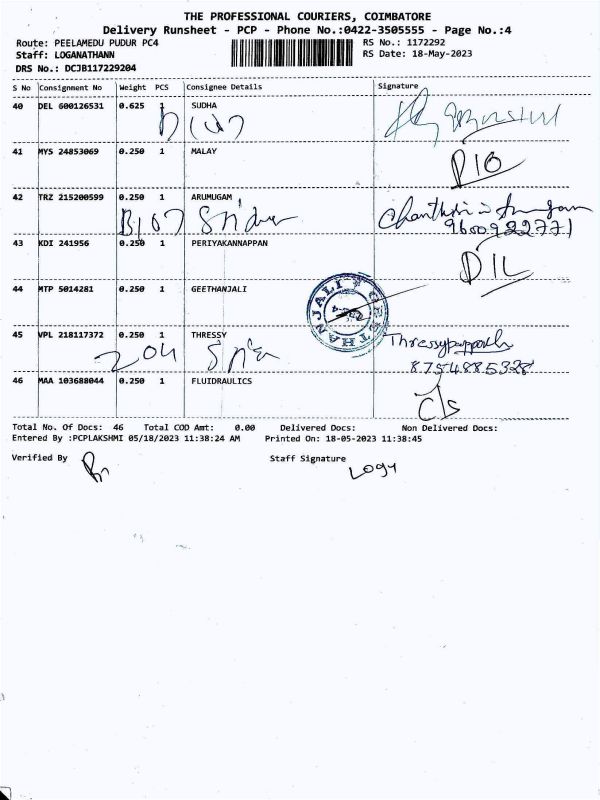 THE PROFESSIONAL COURIERS, COIMBATORE
Delivery Runsheet - PCP - Phone No.:0422-3505555 - Page No.:4
Route: PEELAMEDU PUDUR PC4 RS No.: 1172292
Staff: LOGANATHANN RS Date: 18-May-2023
DRS No.: DCJB117229204
S No Consignment No Weight PCS Consignee Details Signature
40 DEL 600126531 0.625 1 SUDHA
41 MYS 24853069 0.250 1 MALAY
42 TRZ 215200599 0.250 1 ARUMUGAM
B107
9600922771
43 KDI 241956 0.250 1 PERIYAKANNAPPAN
D/L
44 MTP 5014281 0.250 1 GEETHANJALI
GEETHANJALI
45 VPL 218117372 0.250 1 THRESSY
204
8754885328
46 MAA 103688044 0.250 1 FLUIDRAULICS
C/s
Total No. Of Docs: 46 Total COD Amt: 0.00 Delivered Docs: Non Delivered Docs:
Entered By :PCPLAKSHMI 05/18/2023 11:38:24 AM Printed On: 18-05-2023 11:38:45
Verified By Staff Signature
Logy